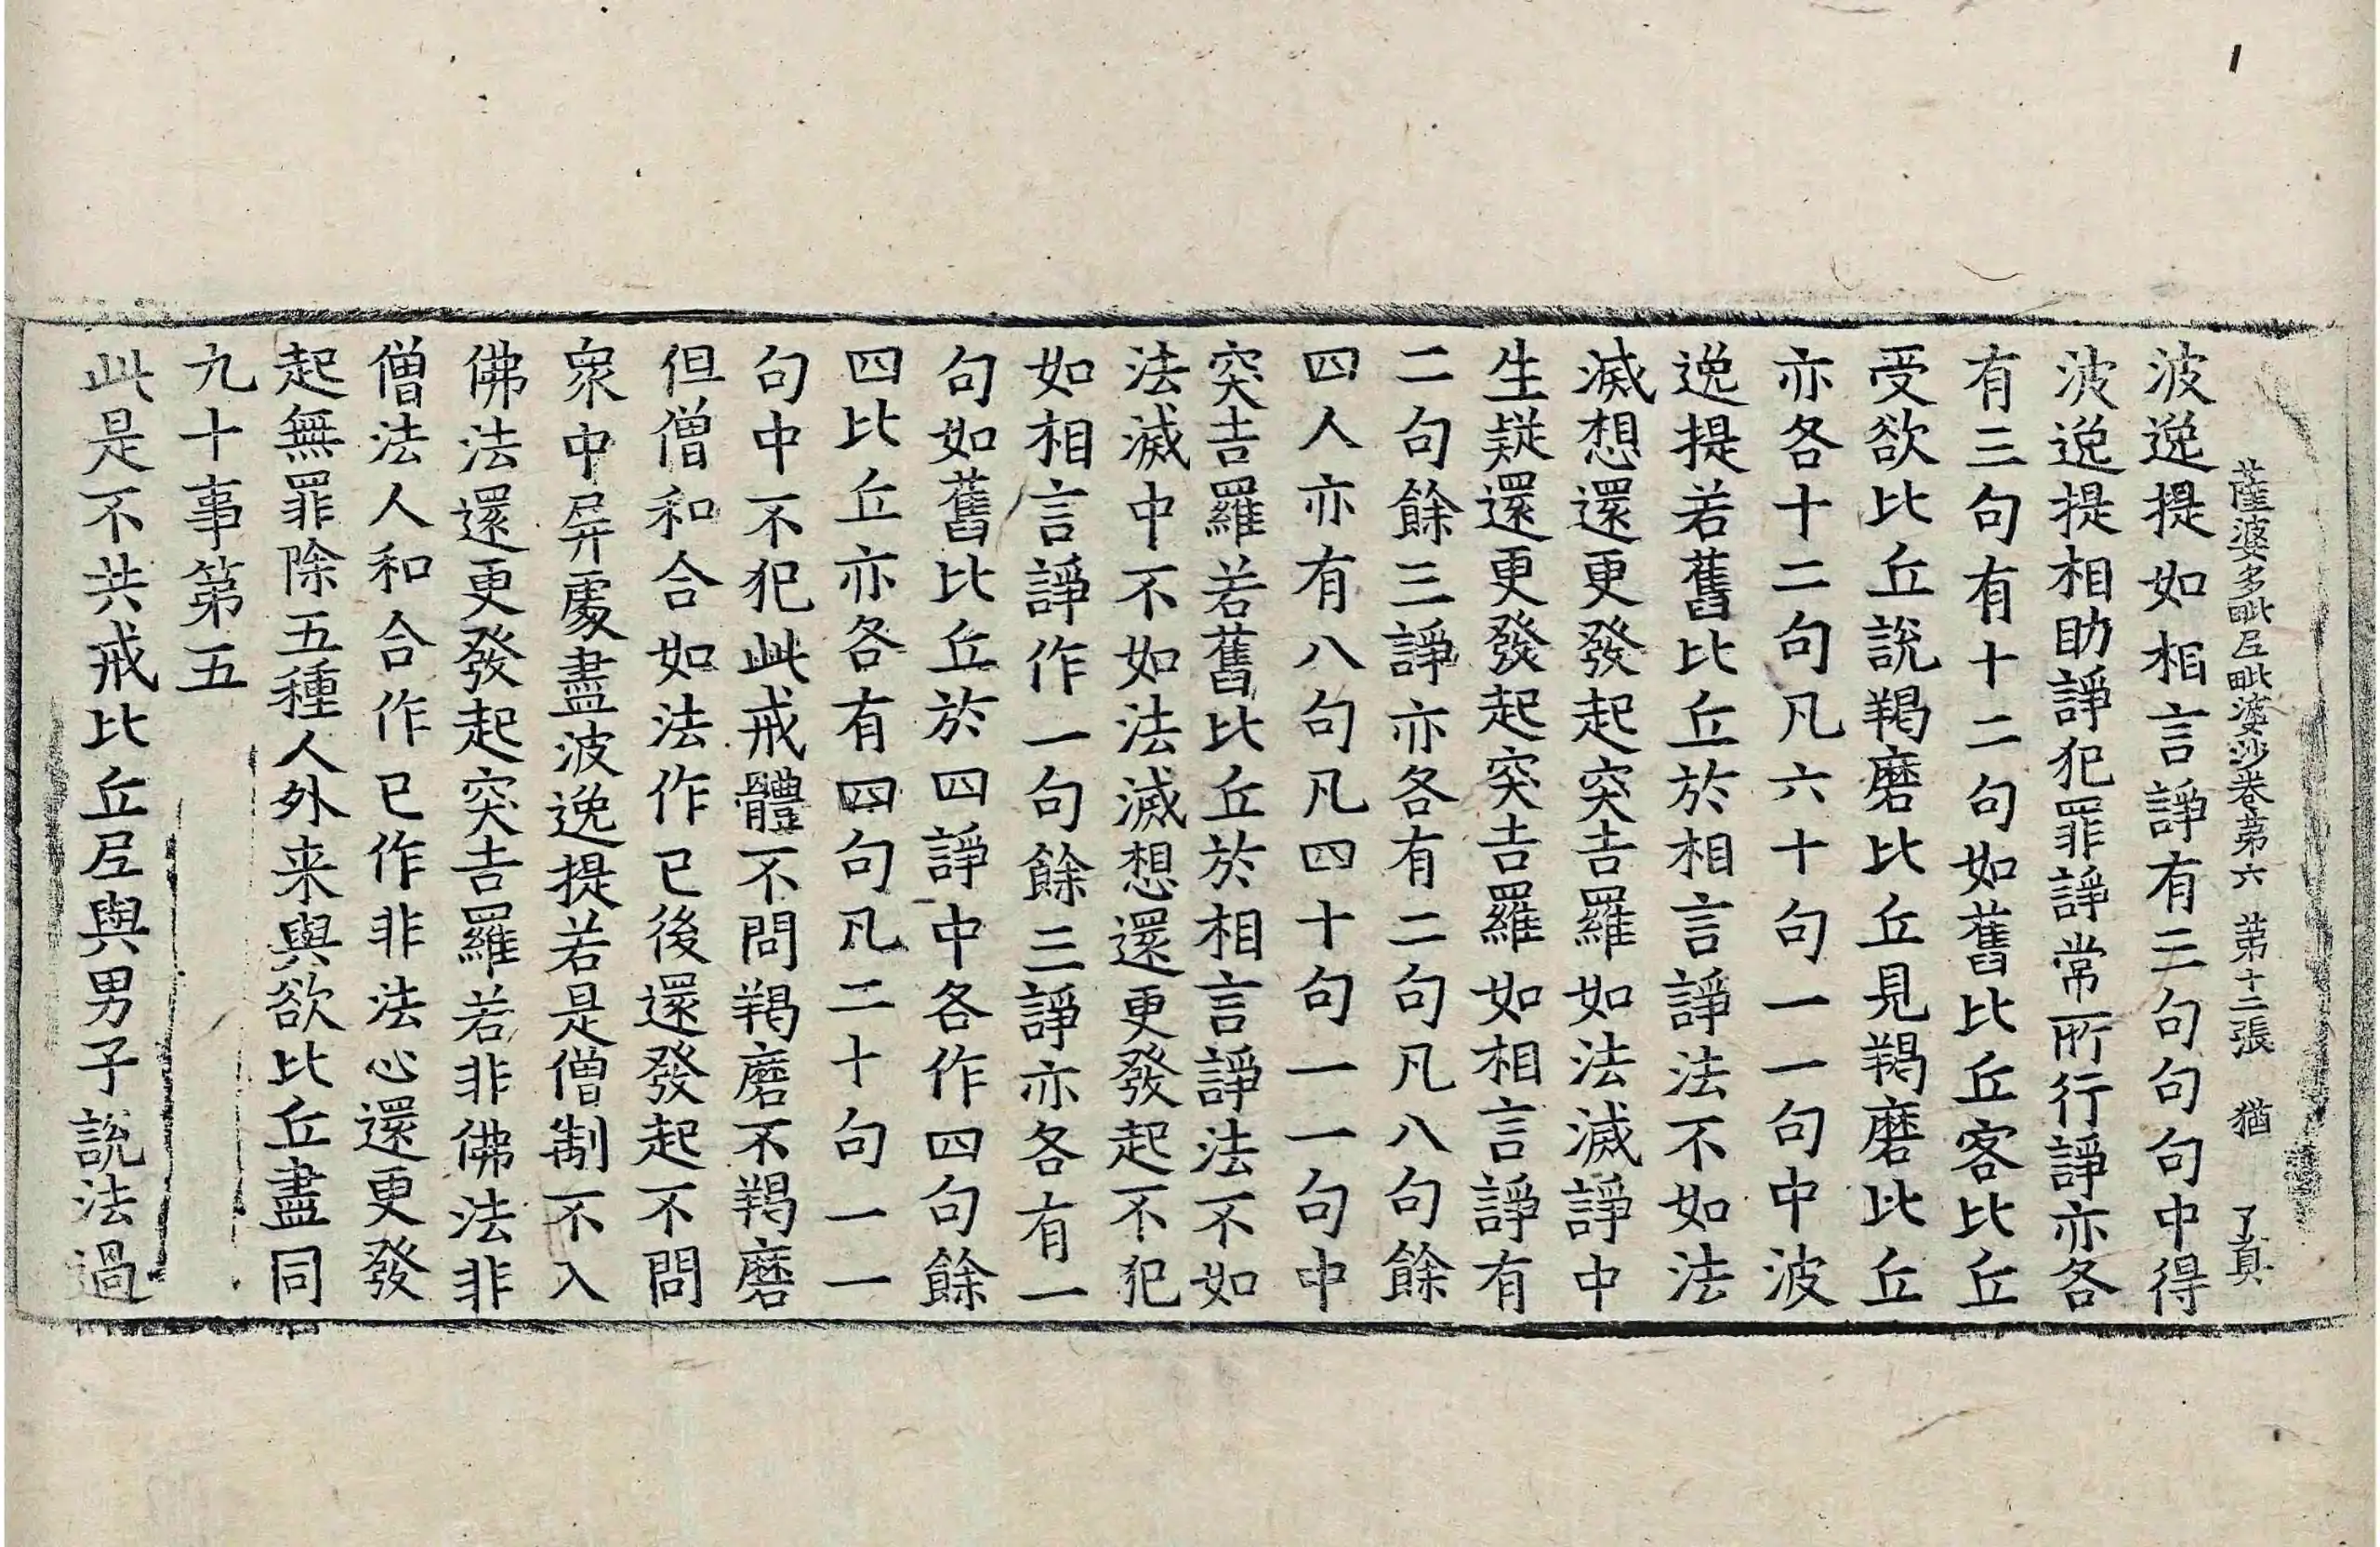 薩婆多毗尼毗婆沙卷第六　第十二張　猶　了真
波逸提如相言諍有三句句句中得
波逸提相助諍犯罪諍常所行諍亦各
有三句有十二句如舊比丘客比丘
受欲比丘說羯磨比丘見羯磨比丘
亦各十二句凡六十句一一句中波
逸提若舊比丘於相言諍法不如法
滅想還更發起突吉羅如法滅諍中
生疑還更發起突吉羅如相言諍有
二句餘三諍亦各有二句凡八句餘
四人亦有八句凡四十句一一句中
突吉羅若舊比丘於相言諍法不如
法滅中不如法滅想還更發起不犯
如相言諍作一句餘三諍亦各有一
句如舊比丘於四諍中各作四句餘
四比丘亦各有四句凡二十句一一
句中不犯此戒體不問羯磨不羯磨
但僧和合如法作已後還發起不問
眾中屏處盡波逸提若是僧制不入
佛法還更發起突吉羅若非佛法非
僧法人和合作已作非法心還更發
起無罪除五種人外来與欲比丘盡同
九十事第五
此是不共戒比丘尼與男子說法過